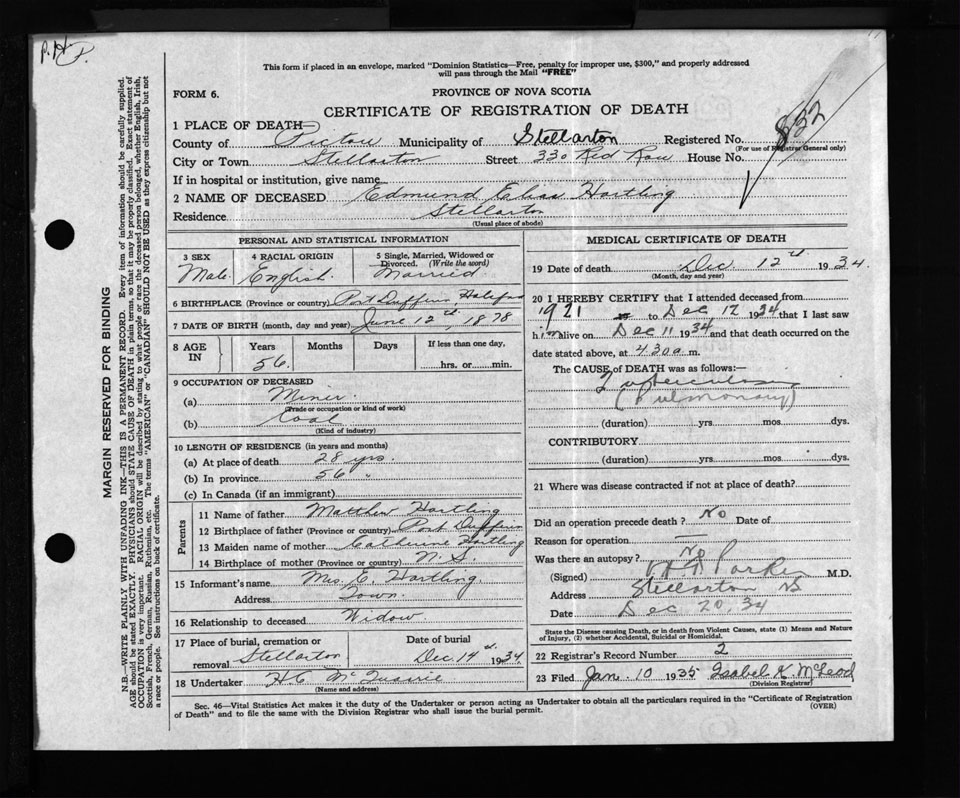 P.H.
This form if placed in an envelope, marked "Dominion Statistics—Free, penalty for improper use, $300," and properly addressed
will pass through the Mail "FREE"
FORM 6.
PROVINCE OF NOVA SCOTIA
CERTIFICATE OF REGISTRATION OF DEATH
832
1 PLACE OF DEATH—
County of Pictou Municipality of Stellarton Registered No.
(For use of Registrar General only)
City or Town Stellarton Street 330 Red Row House No.
If in hospital or institution, give name
2 NAME OF DECEASED Edmund Elias Hartling
Residence Stellarton
(Usual place of abode)
PERSONAL AND STATISTICAL INFORMATION
3 SEX 4 RACIAL ORIGIN 5 Single, Married, Widowed or
Divorced. (Write the word)
Male. English. Married
6 BIRTHPLACE (Province or country) Port Dufferin, Halifax
7 DATE OF BIRTH (month, day and year) June 12th, 1878
8 AGE IN Years Months Days If less than one day,
56. hrs. or min.
9 OCCUPATION OF DECEASED
(a) Miner.
(Trade or occupation or kind of work)
(b) Coal
(Kind of industry)
10 LENGTH OF RESIDENCE (in years and months)
(a) At place of death 28 yrs.
(b) In province 56 "
(c) In Canada (if an immigrant)
Parents
11 Name of father Matthew Hartling
12 Birthplace of father (Province or country) Port Dufferin
13 Maiden name of mother Catherine Hartling
14 Birthplace of mother (Province or country) N.S.
15 Informant's name Mrs. E. Hartling.
Address Town.
16 Relationship to deceased Widow.
17 Place of burial, cremation or Date of burial
removal Stellarton Dec. 14th. 1934
18 Undertaker H.C. McQuarrie
(Name and address)
MEDICAL CERTIFICATE OF DEATH
19 Date of death Dec 12th 1934.
(Month, day and year)
20 I HEREBY CERTIFY that I attended deceased from
1921 to Dec 12 1934 that I last saw
him alive on Dec 11 1934 and that death occurred on the
date stated above, at 4.30 a. m.
The CAUSE OF DEATH was as follows:—
Tuberculosis
(Pulmonary)
(duration) yrs. mos. dys.
CONTRIBUTORY
(duration) yrs. mos. dys.
21 Where was disease contracted if not at place of death?
Did an operation precede death? No Date of
Reason for operation —
Was there an autopsy? No
(Signed) Parker M.D.
Address Stellarton NS
Date Dec 20, 34
State the Disease causing Death, or in death from Violent Causes, state (1) Means and Nature
of Injury, (2) whether Accidental, Suicidal or Homicidal.
22 Registrar's Record Number 2
23 Filed Jan. 10 1935 Isabel K. McLeod
(Division Registrar)
Sec. 46—Vital Statistics Act makes it the duty of the Undertaker or person acting as Undertaker to obtain all the particulars required in the "Certificate of Registration
of Death" and to file the same with the Division Registrar who shall issue the burial permit.
(OVER)
MARGIN RESERVED FOR BINDING
N.B.—WRITE PLAINLY WITH UNFADING INK—THIS IS A PERMANENT RECORD. Every item of information should be carefully supplied.
AGE should be stated EXACTLY. PHYSICIANS should STATE CAUSE OF DEATH in plain terms, so that it may be properly classified. Exact statement of
OCCUPATION is very important. RACIAL ORIGIN will be described by stating to what people or race the deceased person belonged, whether English, Irish,
Scottish, French, German, Russian, Ruthenian, etc. The terms "AMERICAN" or "CANADIAN" SHOULD NOT BE USED as they express citizenship but not
a race or people. See instructions on back of certificate.